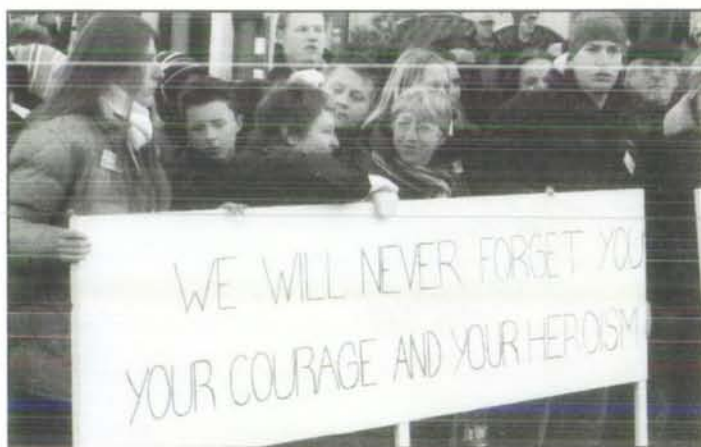 WE WILL NEVER FORGET YOU
YOUR COURAGE AND YOUR HEROISM